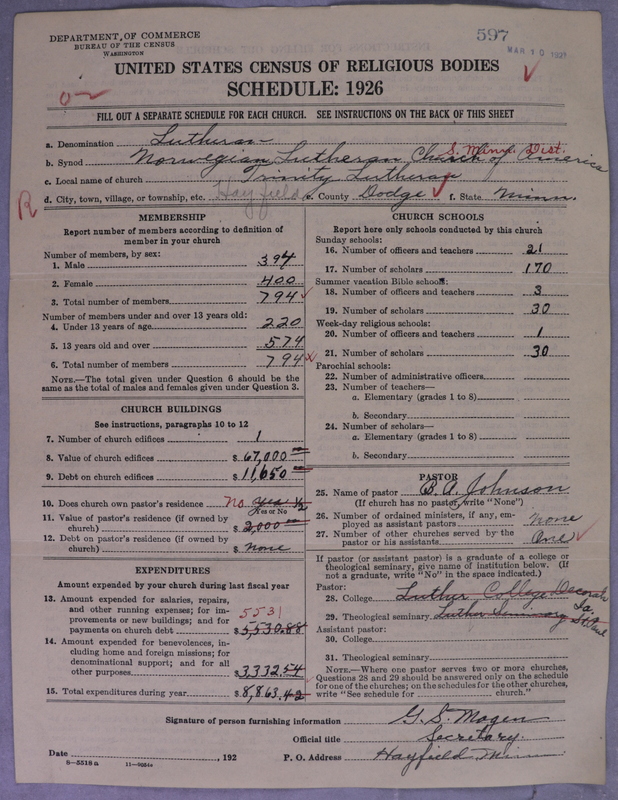 DEPARTMENT OF COMMERCE
BUREAU OF THE CENSUS
WASHINGTON
597
MAR 10 192
UNITED STATES CENSUS OF RELIGIOUS BODIES
SCHEDULE: 1926
FILL OUT A SEPARATE SCHEDULE FOR EACH CHURCH. SEE INSTRUCTIONS ON THE BACK OF THIS SHEET
a. Denomination Lutheran
S. Minn. Dist.
b. Synod Norwegian Lutheran Church of America
c. Local name of church Trinity Lutheran
d. City, town, village, or township, etc. Hayfield e. County Dodge f. State Minn.
R
MEMBERSHIP
Report number of members according to definition of
member in your church
Number of members, by sex:
1. Male 394
2. Female 400
3. Total number of members 794
Number of members under and over 13 years old:
4. Under 13 years of age 220
5. 13 years old and over 574
6. Total number of members 794
NOTE.—The total given under Question 6 should be the
same as the total of males and females given under Question 3.
CHURCH BUILDINGS
See instructions, paragraphs 10 to 12
7. Number of church edifices 1
8. Value of church edifices $ 67,000
9. Debt on church edifices $ 11,650
10. Does church own pastor's residence No Yes 1/2
Yes or No
11. Value of pastor's residence (if owned by
church) $ 2,000
12. Debt on pastor's residence (if owned by
church) $ none
EXPENDITURES
Amount expended by your church during last fiscal year
13. Amount expended for salaries, repairs,
and other running expenses; for im-
provements or new buildings; and for
payments on church debt 5531 $ 5,530.88
14. Amount expended for benevolences, in-
cluding home and foreign missions; for
denominational support; and for all
other purposes 3,332.54
15. Total expenditures during year $ 8,863.42
CHURCH SCHOOLS
Report here only schools conducted by this church
Sunday schools:
16. Number of officers and teachers 21
17. Number of scholars 170
Summer vacation Bible schools:
18. Number of officers and teachers 3
19. Number of scholars 30
Week-day religious schools:
20. Number of officers and teachers 1
21. Number of scholars 30
Parochial schools:
22. Number of administrative officers
23. Number of teachers—
a. Elementary (grades 1 to 8)
b. Secondary
24. Number of scholars—
a. Elementary (grades 1 to 8)
b. Secondary
PASTOR
25. Name of pastor B. A. Johnson
(If church has no pastor, write "None")
26. Number of ordained ministers, if any, em-
ployed as assistant pastors none
27. Number of other churches served by the
pastor or his assistants One
If pastor (or assistant pastor) is a graduate of a college or
theological seminary, give name of institution below. (If
not a graduate, write "No" in the space indicated.)
Pastor:
28. College Luther College Decorah Ia.
29. Theological seminary Luther Seminary St. Paul
Assistant pastor:
30. College
31. Theological seminary
NOTE.—Where one pastor serves two or more churches,
Questions 28 and 29 should be answered only on the schedule
for one of the churches; on the schedules for the other churches,
write "See schedule for church."
Signature of person furnishing information G. S. Mogen
Official title Secretary.
Date , 192 P. O. Address Hayfield, Minn
8-5518a 11-9024